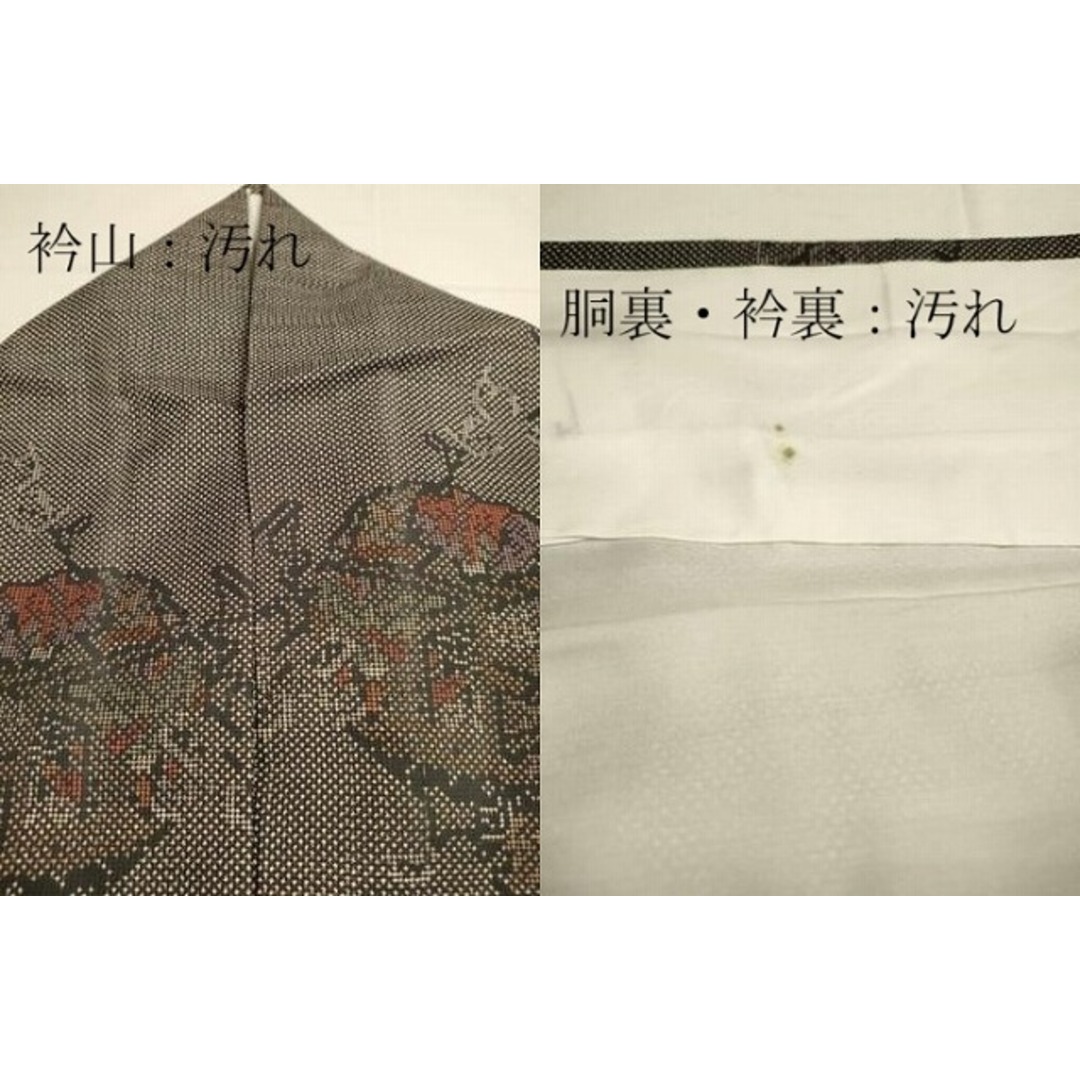 衿山：汚れ
胴裏・衿裏：汚れ